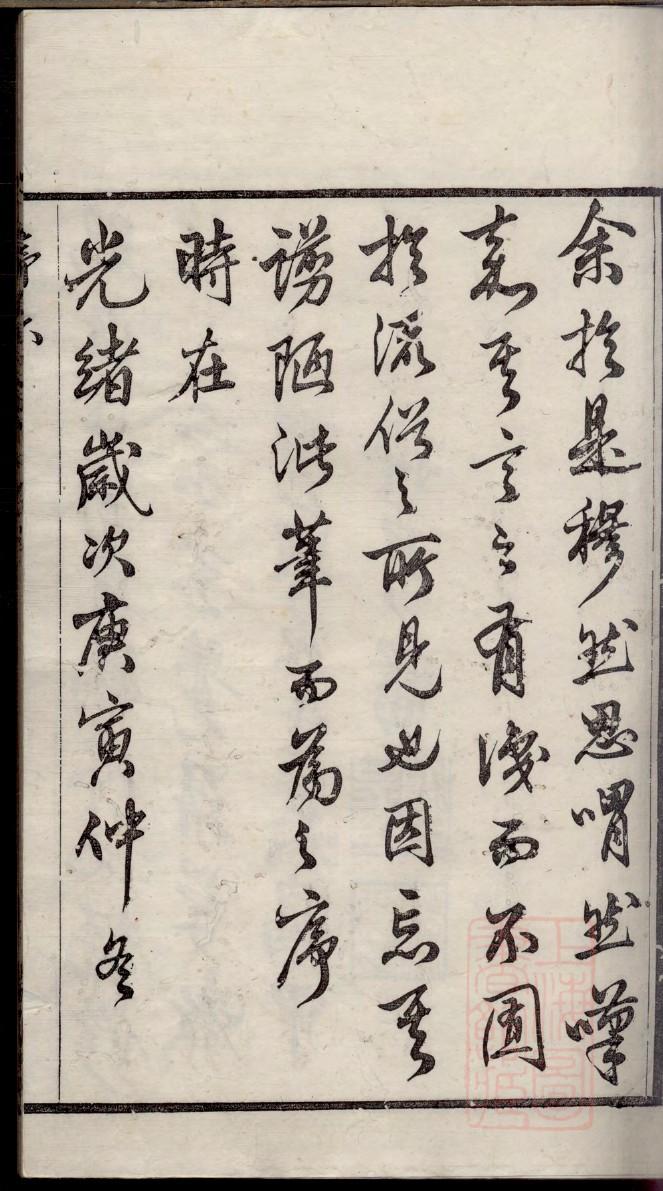 余於是穆然思喟然嘆
嘉其言之有識而不囿
於流俗之所見也因忘其
譾陋泚筆而為之序
時在
光緒歲次庚寅仲冬